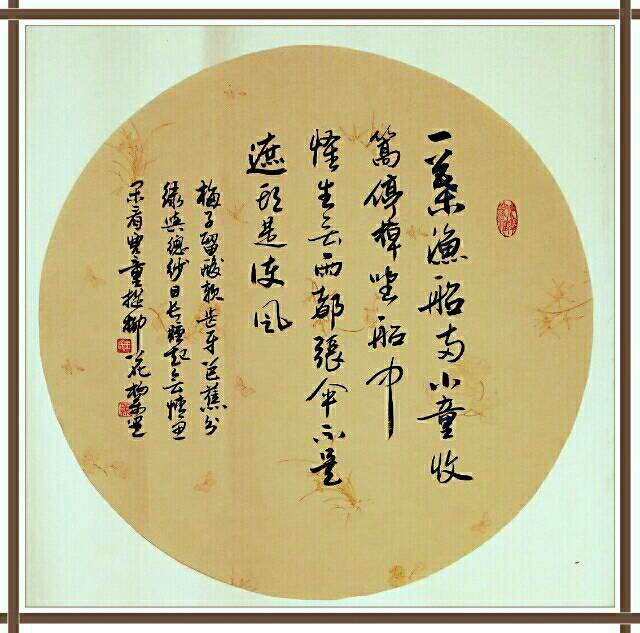 一葉漁船两小童收
篙停棹坐船中
怪生无雨都張伞不是
遮头是使风
梅子留酸軟齿牙芭蕉分
绿與窗纱日長睡起无情思
闲看児童捉柳花